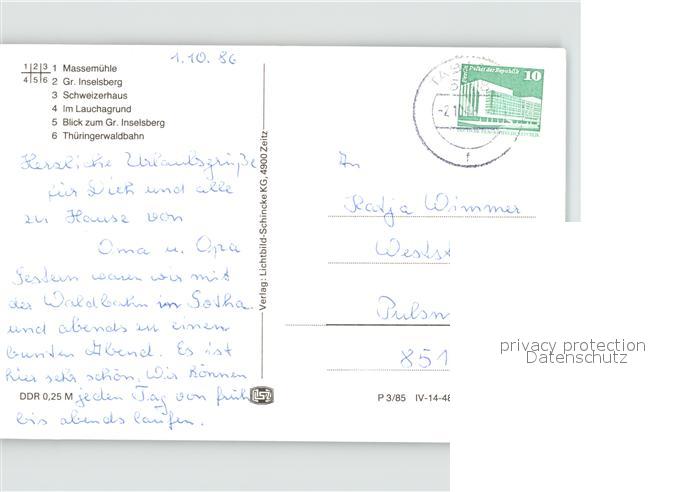 1.10.86
1|2|3
4|5|6
1 Massemühle
2 Gr. Inselsberg
3 Schweizerhaus
4 Im Lauchagrund
5 Blick zum Gr. Inselsberg
6 Thüringerwaldbahn
Herzliche Urlaubsgrüße
für Dich und alle
zu Hause von
Oma u. Opa
Gestern waren wir mit
der Waldbahn in Gotha
und abends zu einem
bunten Abend. Es ist
hier sehr schön, Wir können
jeden Tag von früh
bis abends laufen.
DDR 0,25 M
Verlag: Lichtbild-Schincke KG, 4900 Zeitz
Palast der Republik 10
An
Katja Wimmer
Westst
Pulsn
851
P 3/85 IV-14-48
privacy protection
Datenschutz